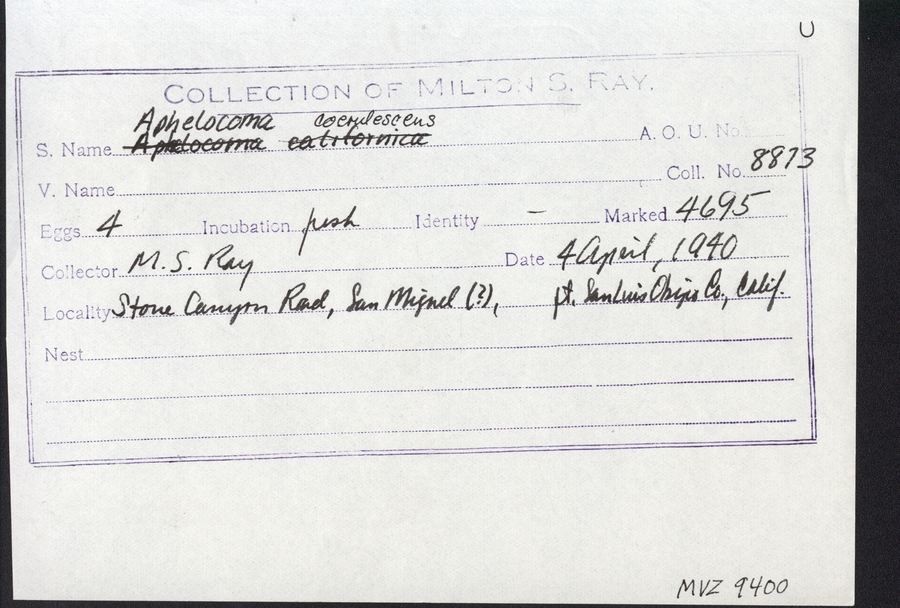 U
COLLECTION OF MILTON S. RAY.
Aphelocoma coerulescens
S. Name Aphelocoma californica A. O. U. No.
V. Name Coll. No. 8873
Eggs 4 Incubation fresh Identity – Marked 4695
Collector M. S. Ray Date 4 April, 1940
Locality Stone Canyon Road, San Miguel (?), San Luis Obispo Co., Calif.
Nest
MVZ 9400